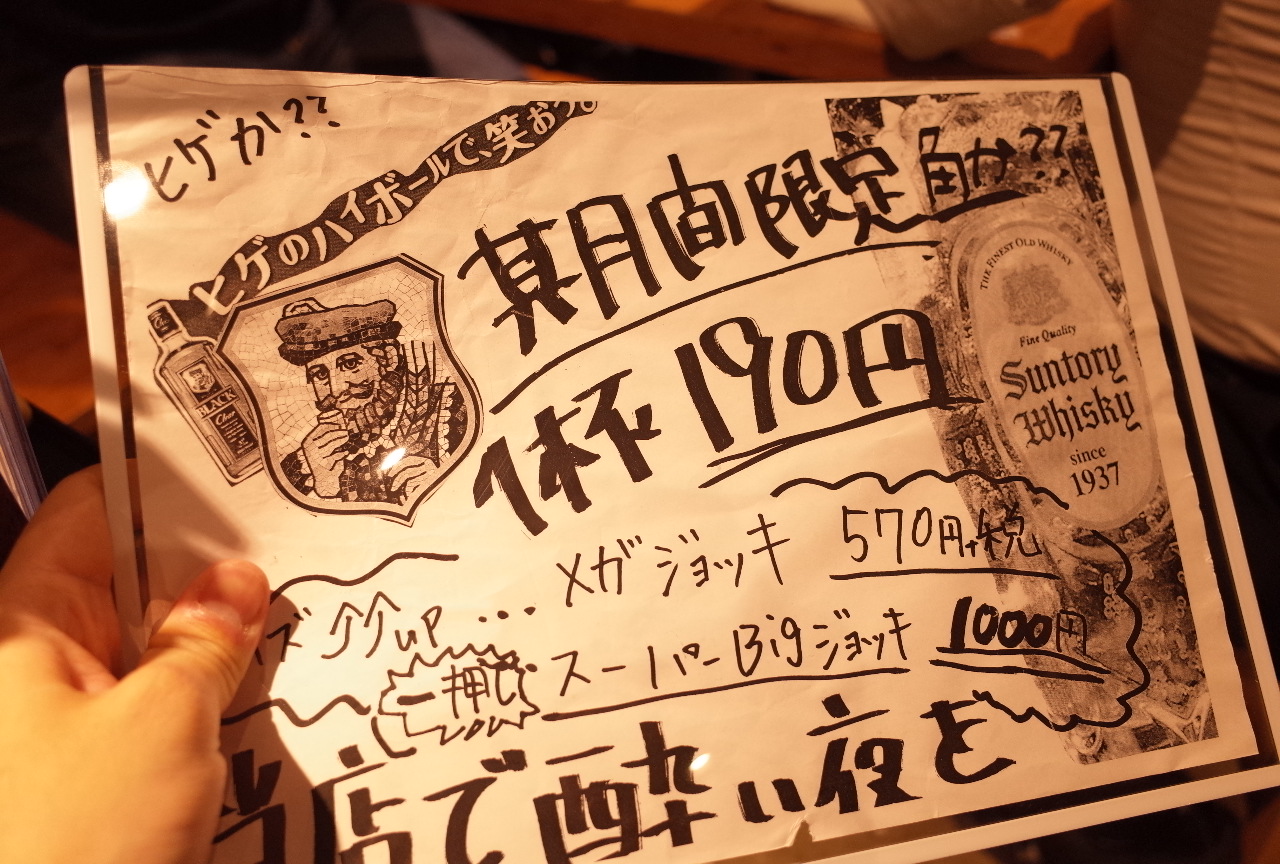 ヒゲか??
ヒゲのハイボールで、笑おう。
BLACK
Clear
某月間限定 角か??
1杯 190円
THE FINEST OLD WHISKY
Fine Quality
Suntory
Whisky
since
1937
イズ↑↑up... メガジョッキ 570円+税
一押し スーパーBigジョッキ 1000円
当店で酔い夜を